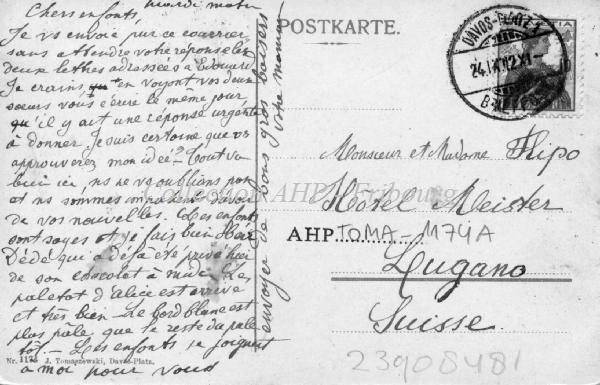 mardi matin
Chers enfants
Je vs envoie par ce courrier
sans attendre votre réponse les
deux lettres adressées à Edouard
Je crains en voyant vos deux
soeurs vous écrire le même jour
qu'il y ait une réponse urgente
à donner. Je suis certaine que vs
approuverez mon idée? Tout va
bien ici, ns ne vs oublions pas
et ns sommes impatients d'avoir
de vos nouvelles. Les enfants
sont sages et je fais bien obéir
Dédé qui a déjà été privé hier
de son chocolat à midi. Le
paletot d'Alice est arrivé
et très bien. Le bord blanc est
plus pâle que le reste du pale
tôt. Les enfants se joignent
à moi pour vous
envoyer de bons gros baisers
Votre maman
POSTKARTE.
DAVOS-PLATZ 1
24.IX.12.XI-
Monsieur et Madame Flipo
Hôtel Meister
Lugano
Suisse
Collection AHP - Fribourg
AHP TOMA-1174A
23908481
Nr. 1174 J. Tomaszewski, Davos-Platz.